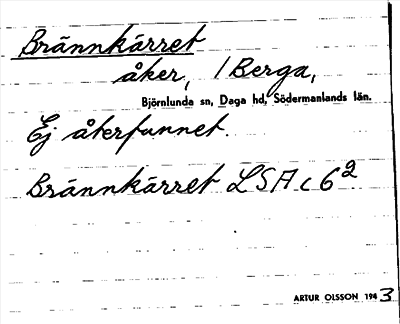 Brännkärret
åker, / Berga,
Björnlunda sn, Daga hd, Södermanlands län.
Ej återfunnet.
Brännkärret LSA c 6²
ARTUR OLSSON 1943